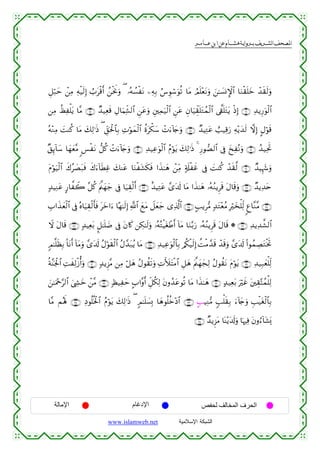 المصحف الشريف برواية هشام عن ابن عامر
وَلَقَدْ خَلَقْنَا ٱلْإِنسَٰنَ وَنَعْلَمُ مَا تُوَسْوِسُ بِهِۦ نَفْسُهُۥ ۖ وَنَحْنُ أَقْرَبُ إِلَيْهِ مِنْ حَبْلِ
ٱلْوَرِيدِ ۝١٦ إِذْ يَتَلَقَّى ٱلْمُتَلَقِّيَانِ عَنِ ٱلْيَمِينِ وَعَنِ ٱلشِّمَالِ قَعِيدٌ ۝١٧ مَّا يَلْفِظُ مِن
قَوْلٍ إِلَّا لَدَيْهِ رَقِيبٌ عَتِيدٌ ۝١٨ وَجَآءَتْ سَكْرَةُ ٱلْمَوْتِ بِٱلْحَقِّ ۖ ذَٰلِكَ مَا كُنتَ مِنْهُ
تَحِيدُ ۝١٩ وَنُفِخَ فِى ٱلصُّورِ ۚ ذَٰلِكَ يَوْمُ ٱلْوَعِيدِ ۝٢٠ وَجَآءَتْ كُلُّ نَفْسٍ مَّعَهَا سَآئِقٌ
وَشَهِيدٌ ۝٢١ لَّقَدْ كُنتَ فِى غَفْلَةٍ مِّنْ هَٰذَا فَكَشَفْنَا عَنكَ غِطَآءَكَ فَبَصَرُكَ ٱلْيَوْمَ
حَدِيدٌ ۝٢٢ وَقَالَ قَرِينُهُۥ هَٰذَا مَا لَدَىَّ عَتِيدٌ ۝٢٣ أَلْقِيَا فِى جَهَنَّمَ كُلَّ كَفَّارٍ عَنِيدٍ
۝٢٤ مَّنَّاعٍ لِّلْخَيْرِ مُعْتَدٍ مُّرِيبٍ ۝٢٥ ٱلَّذِى جَعَلَ مَعَ ٱللَّهِ إِلَٰهًا ءَاخَرَ فَأَلْقِيَاهُ فِى ٱلْعَذَابِ
ٱلشَّدِيدِ ۝٢٦ * قَالَ قَرِينُهُۥ رَبَّنَا مَآ أَطْغَيْتُهُۥ وَلَٰكِن كَانَ فِى ضَلَٰلٍۭ بَعِيدٍ ۝٢٧ قَالَ لَا
تَخْتَصِمُوا۟ لَدَىَّ وَقَدْ قَدَّمْتُ إِلَيْكُم بِٱلْوَعِيدِ ۝٢٨ مَا يُبَدَّلُ ٱلْقَوْلُ لَدَىَّ وَمَآ أَنَا۠ بِظَلَّٰمٍ
لِّلْعَبِيدِ ۝٢٩ يَوْمَ نَقُولُ لِجَهَنَّمَ هَلِ ٱمْتَلَأْتِ وَتَقُولُ هَلْ مِن مَّزِيدٍ ۝٣٠ وَأُزْلِفَتِ ٱلْجَنَّةُ
لِلْمُتَّقِينَ غَيْرَ بَعِيدٍ ۝٣١ هَٰذَا مَا تُوعَدُونَ لِكُلِّ أَوَّابٍ حَفِيظٍ ۝٣٢ مَّنْ خَشِىَ ٱلرَّحْمَٰنَ
بِٱلْغَيْبِ وَجَآءَ بِقَلْبٍ مُّنِيبٍ ۝٣٣ ٱدْخُلُوهَا بِسَلَٰمٍ ۖ ذَٰلِكَ يَوْمُ ٱلْخُلُودِ ۝٣٤ لَهُم مَّا
يَشَآءُونَ فِيهَا وَلَدَيْنَا مَزِيدٌ ۝٣٥
الحرف المخالف لحفص الإدغام الإمالة
الشبكة الإسلامية www.islamweb.net